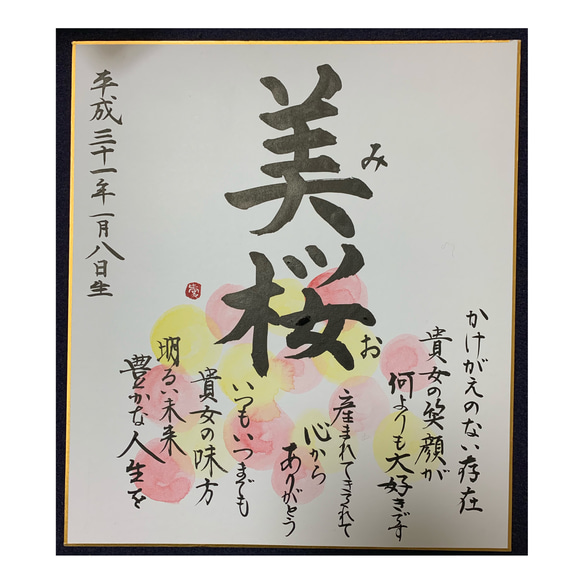 美桜
みお
かけがえのない存在
貴女の笑顔が
何よりも大好きです
産まれてきてくれて
心から
ありがとう
いつもいつまでも
貴女の味方
明るい未来
豊かな人生を
平成三十一年一月八日生